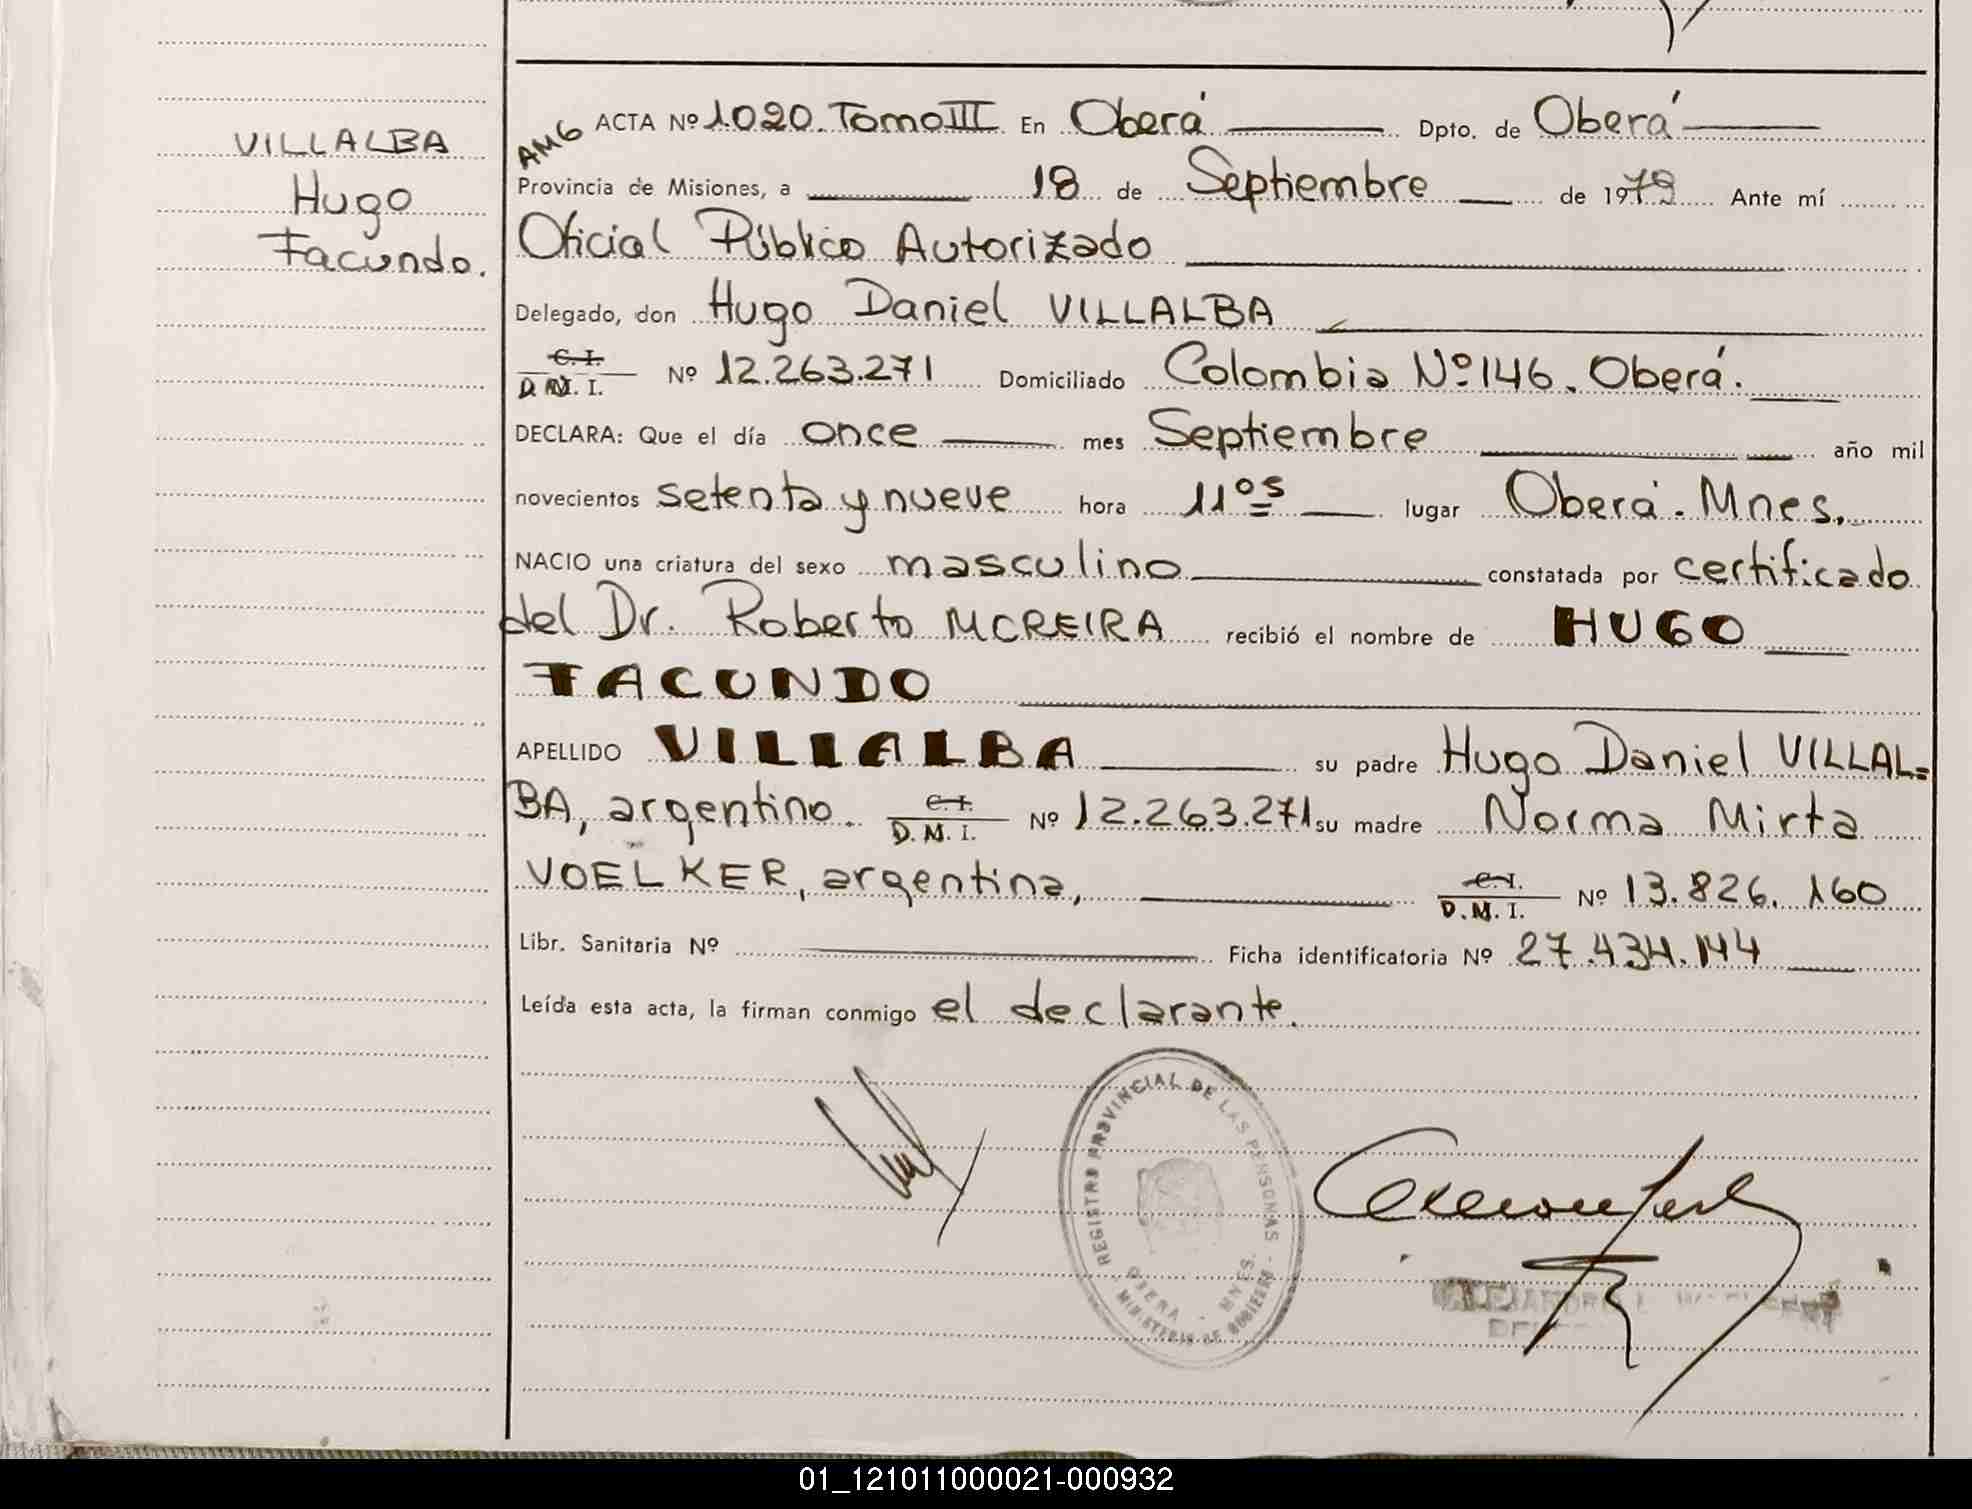 VILLALBA
Hugo
Facundo.
AMG
ACTA Nº 1020. Tomo III En Oberá Dpto. de Oberá
Provincia de Misiones, a 18 de Septiembre de 1979 Ante mí
Oficial Público Autorizado
Delegado, don Hugo Daniel VILLALBA
C. I.
D. N. I. Nº 12.263.271 Domiciliado Colombia Nº 146. Oberá.
DECLARA: Que el día once mes Septiembre año mil
novecientos setenta y nueve hora 11 os lugar Oberá. Mnes.
NACIO una criatura del sexo masculino constatada por certificado
del Dr. Roberto MOREIRA recibió el nombre de HUGO
FACUNDO
APELLIDO VILLALBA su padre Hugo Daniel VILLAL=
BA, argentino. C. I. D. N. I. Nº 12.263.271 su madre Norma Mirta
VOELKER, argentina, C. I. D. N. I. Nº 13.826.160
Libr. Sanitaria Nº Ficha identificatoria Nº 27.434.144
Leída esta acta, la firman conmigo el declarante.
REGISTRO PROVINCIAL DE LAS PERSONAS
OBERA - MNES.
MINISTERIO DE GOBIERNO
01_121011000021-000932